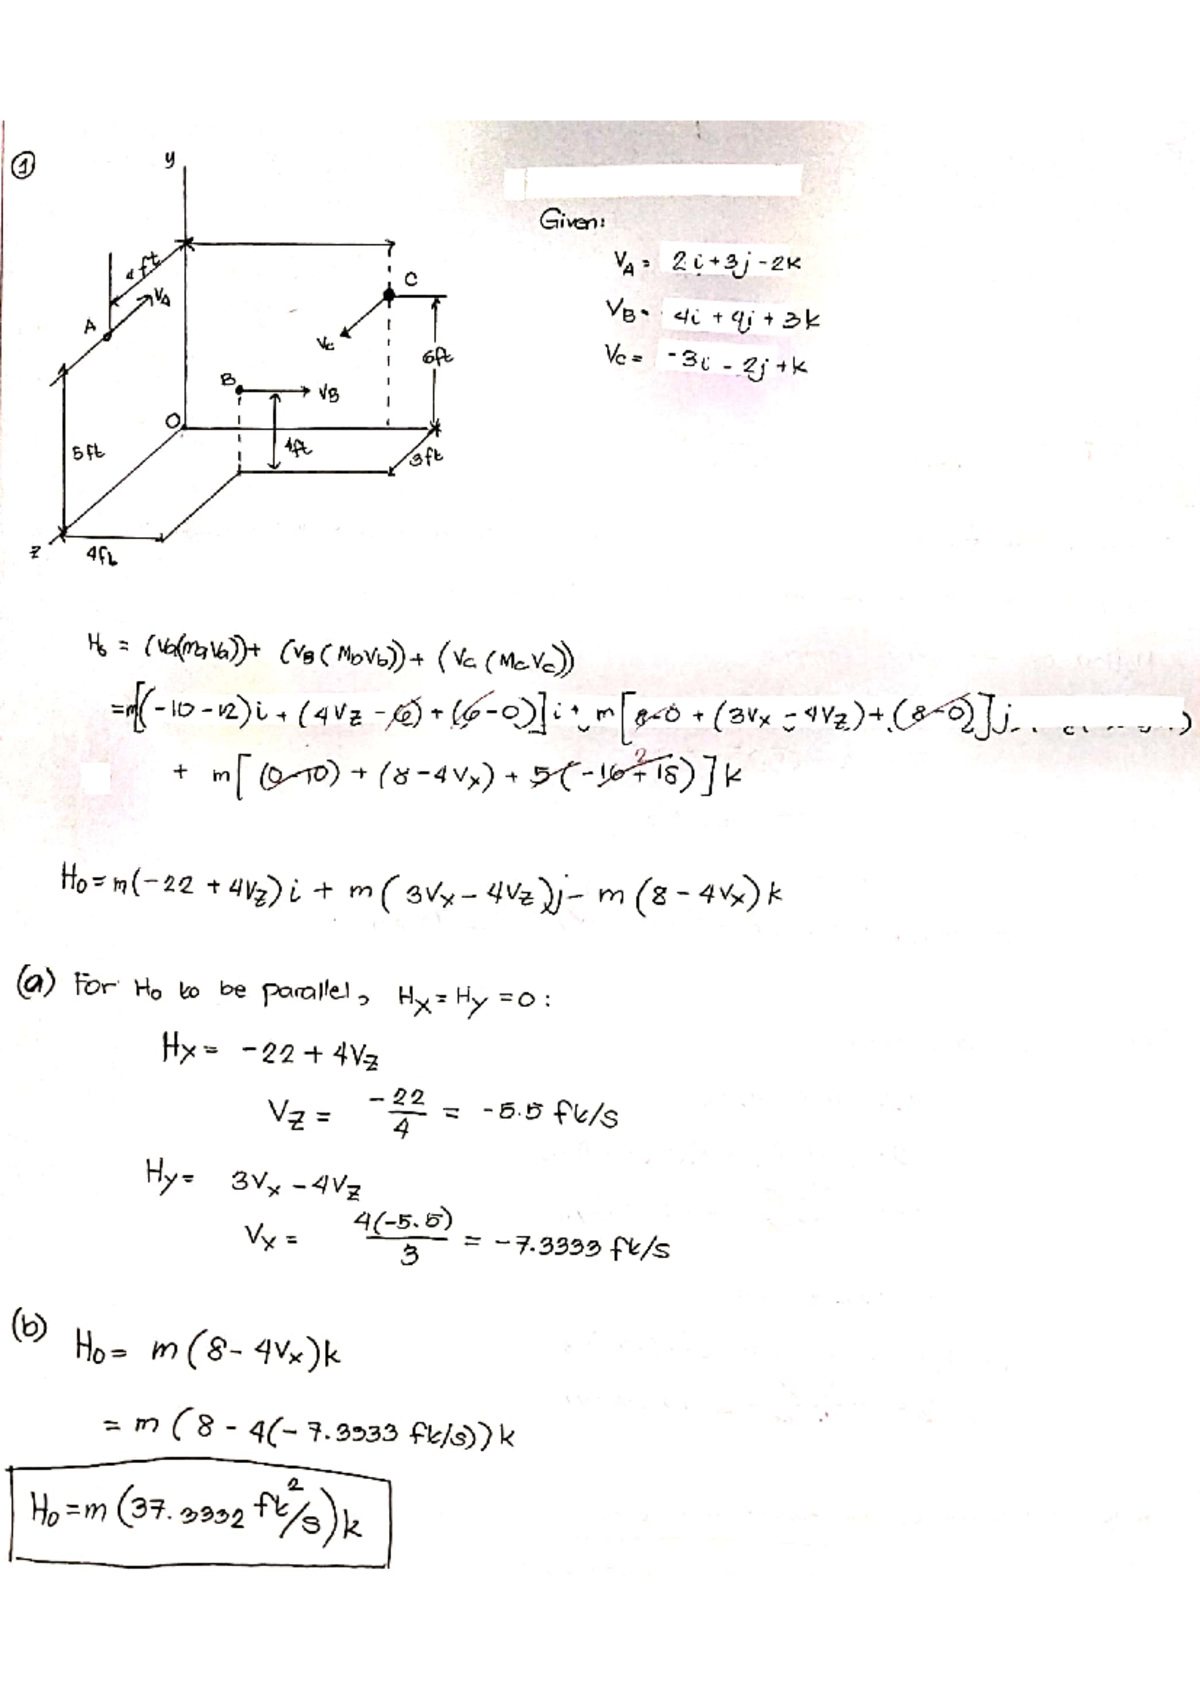 ①
y
4ft
VA
A
C
Vc
6ft
B
VB
O
4ft
5ft
3ft
z
4ft
Given:
VA = 2i+3j-2k
VB = 4i + 4j + 3k
Vc = -3i - 2j + k
Ho = (Va(maVa))+ (VB(MbVb))+ (Vc(McVc))
=m[(-10-12)i + (4Vz - 6) + (6-0)]i + m[8-0 + (3Vx - 4Vz)+(8-0)]j
+ m[(0-10) + (8-4Vx) + 5(-16+18)]k
2
Ho=m(-22 + 4Vz)i + m(3Vx - 4Vz)j - m(8-4Vx)k
(a) For Ho to be parallel, Hx = Hy = 0:
Hx = -22 + 4Vz
Vz = -22/4 = -5.5 ft/s
Hy = 3Vx - 4Vz
Vx = 4(-5.5)/3 = -7.3333 ft/s
(b)
Ho = m(8-4Vx)k
= m(8-4(-7.3333 ft/s))k
Ho=m(37.3332 ft²/s)k